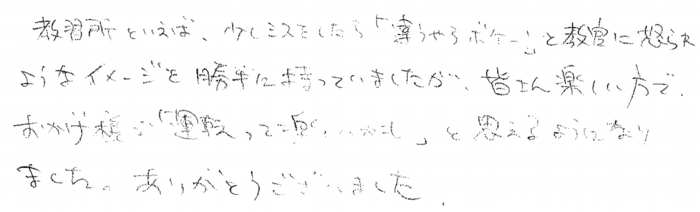 教習所といえば、少しミスをしたら「違うやろボケー」と教官に怒られ
ようなイメージを勝手に持っていましたが、皆さん楽しい方で、
おかげ様で「運転って楽しいかも」と思えるようになり
ました。ありがとうございました